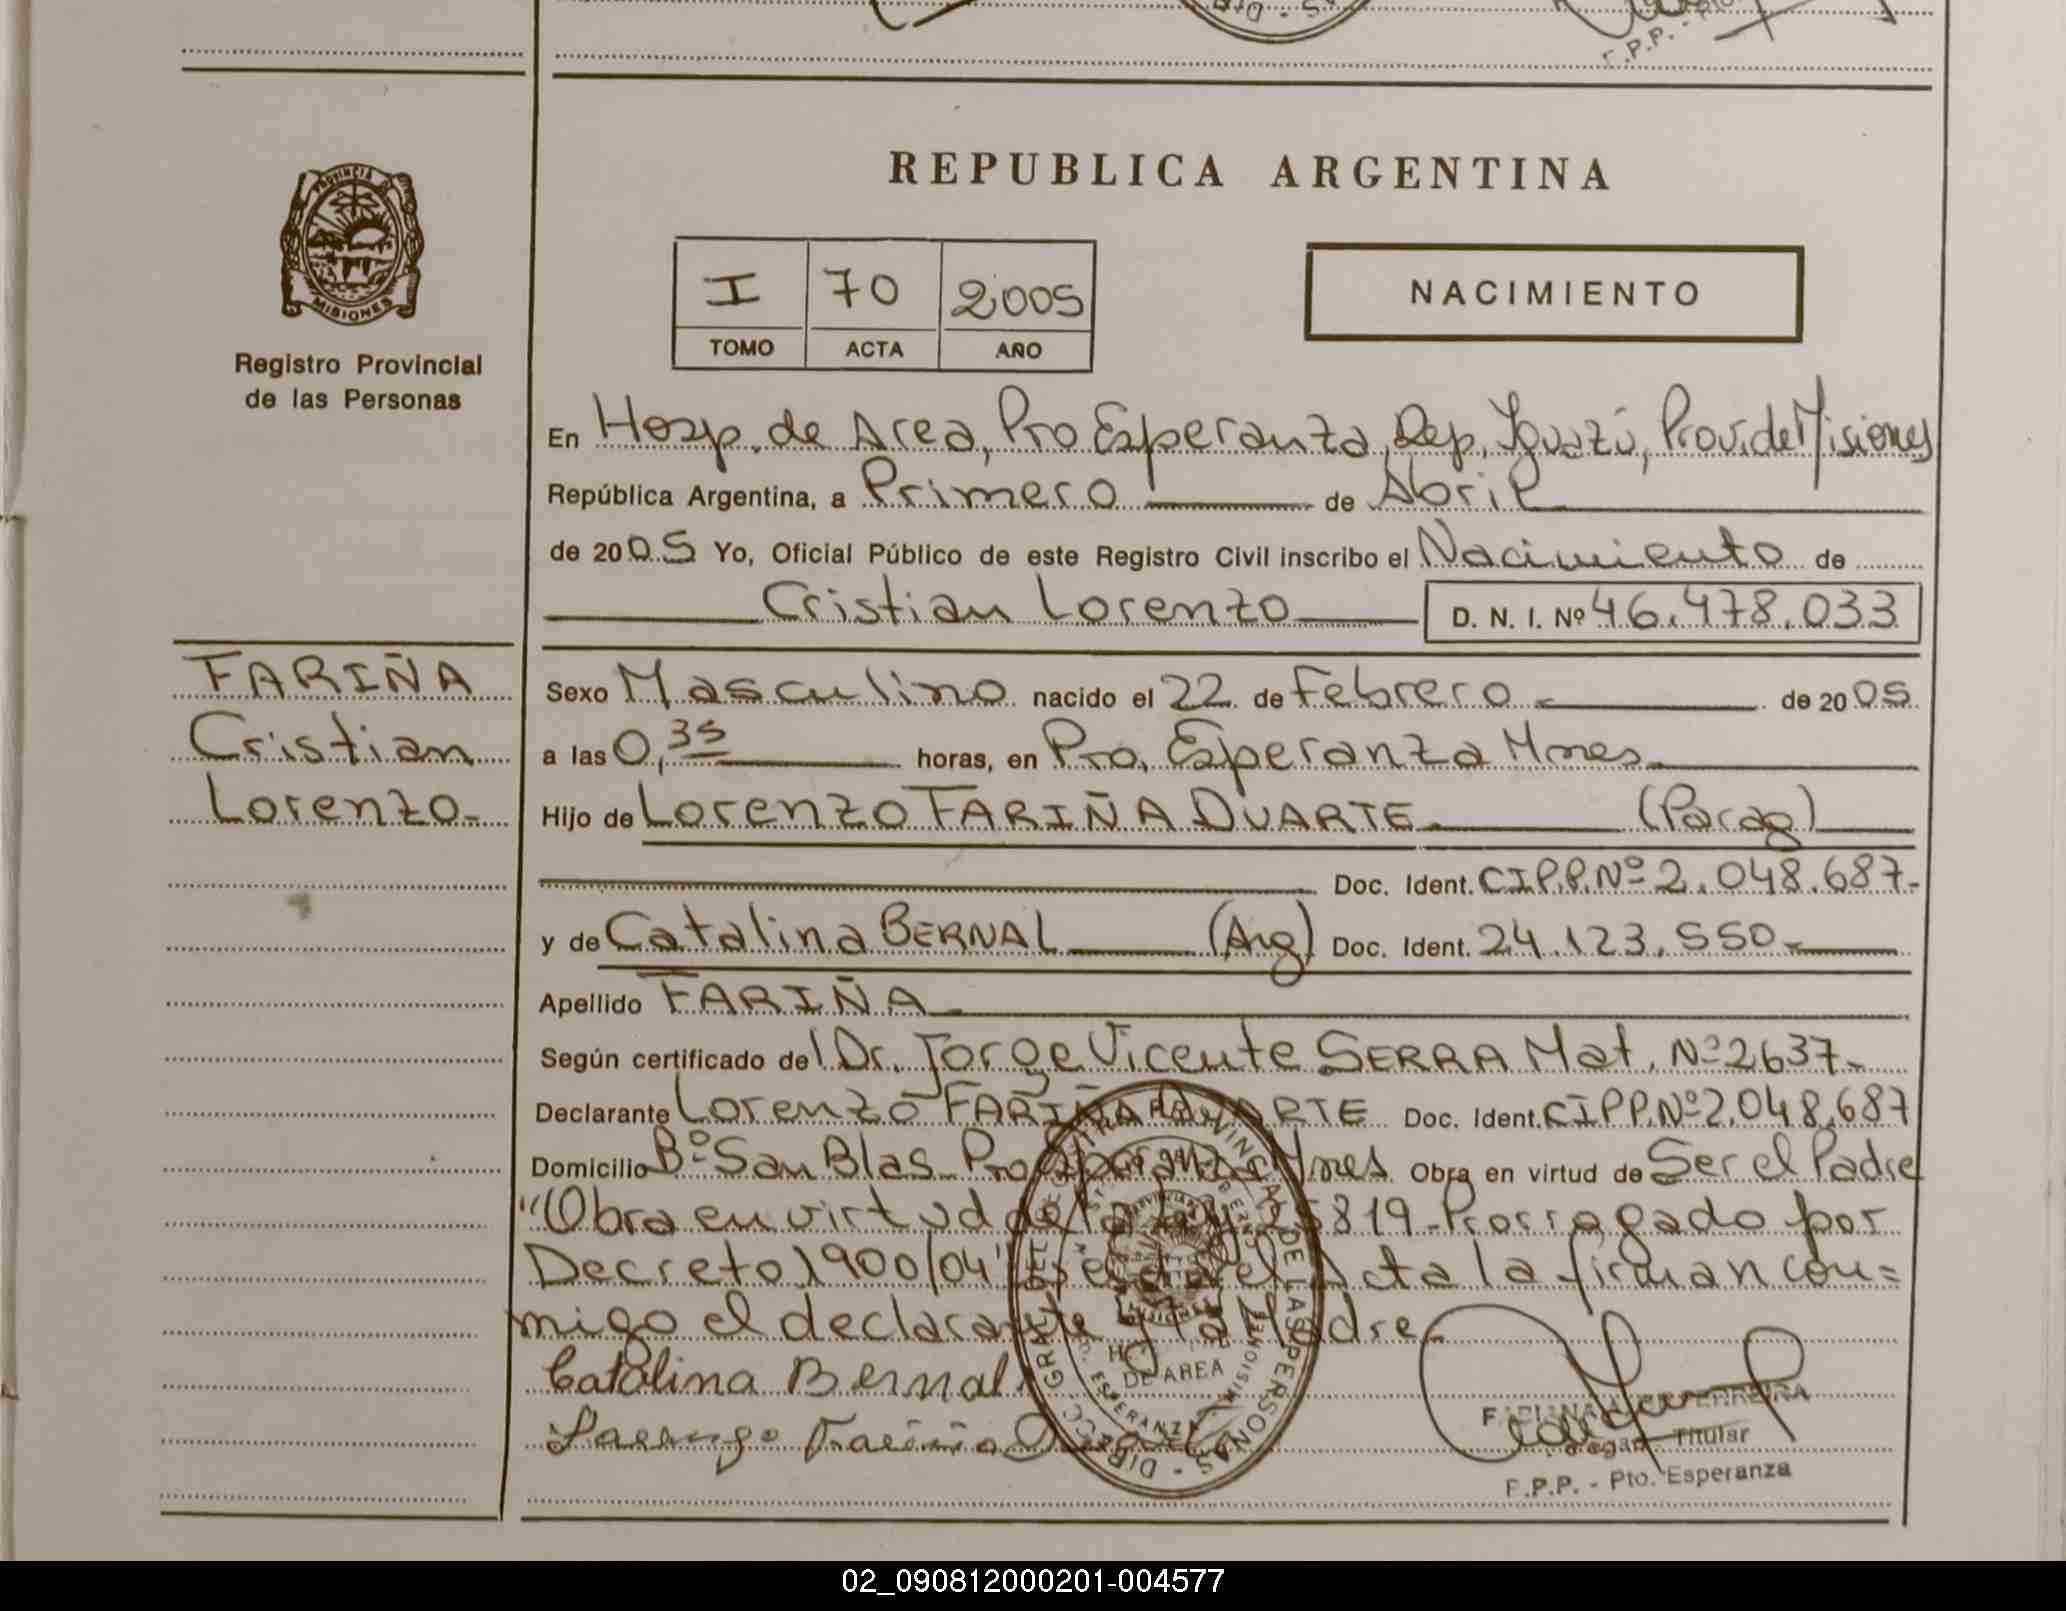 REPUBLICA ARGENTINA
PROVINCIA
MISIONES
Registro Provincial
de las Personas
I 70 2005
TOMO ACTA AÑO
NACIMIENTO
En Hosp. de Area, Pto Esperanza, Dep. Iguazú, Prov. de Misiones
República Argentina, a Primero de Abril
de 2005 Yo, Oficial Público de este Registro Civil inscribo el Nacimiento de
Cristian Lorenzo D. N. I. Nº 46.478.033
FARIÑA
Cristian
Lorenzo-
Sexo Masculino nacido el 22 de Febrero de 2005
a las 0,35 horas, en Pto. Esperanza Mnes
Hijo de Lorenzo FARIÑA DUARTE (Parag)
Doc. Ident. CIPP.Nº 2.048.687-
y de Catalina BERNAL (Arg) Doc. Ident. 24.123.550-
Apellido FARIÑA
Según certificado del Dr. Jorge Vicente SERRA Mat. Nº 2637-
Declarante Lorenzo FARIÑA DUARTE Doc. Ident. CIPP.Nº 2.048.687
Domicilio Bº San Blas Pto Esperanza Mnes Obra en virtud de Ser el Padre
"Obra en virtud de la Ley 25819-Prorrogado por
Decreto 1900/04" Acta la firman con=
migo el declarante y la Madre
Catalina Bernal
Fariña
Titular
F.P.P. - Pto. Esperanza
DE AREA
02_090812000201-004577